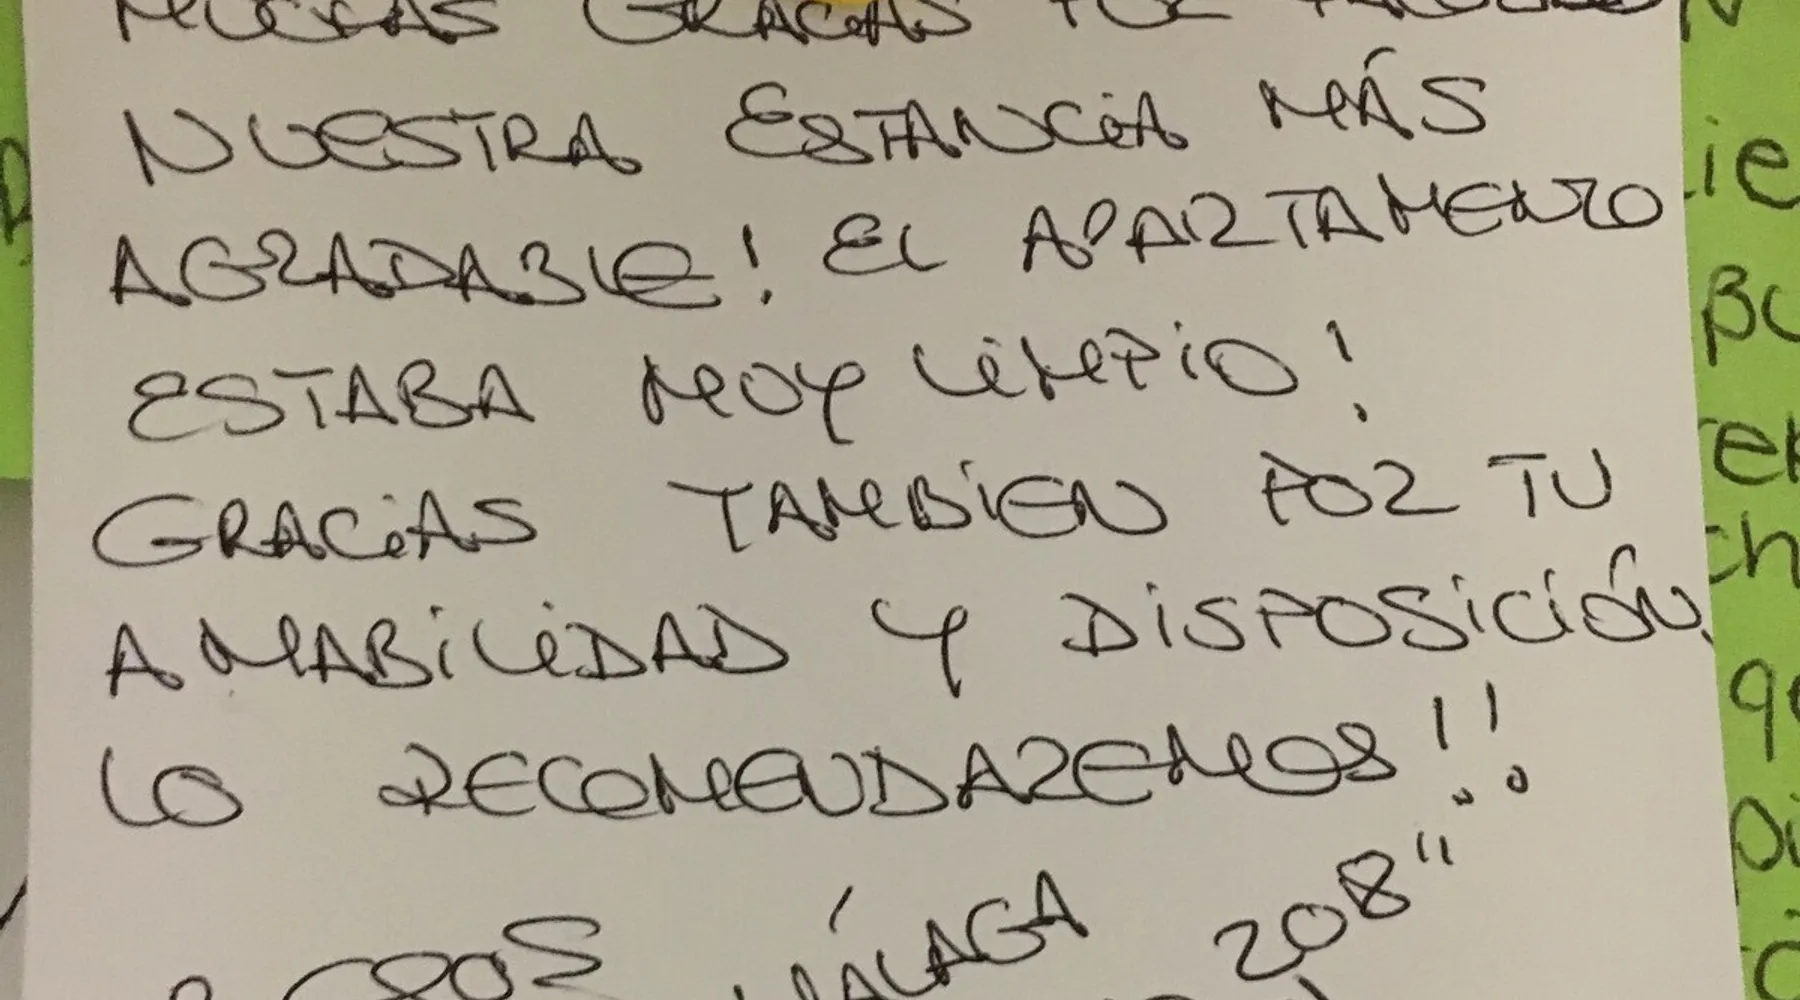 MUCHAS GRACIAS POR
NUESTRA ESTANCIA MÁS
AGRADABLE! EL APARTAMENTO
ESTABA MUY LIMPIO!
GRACIAS TAMBIEN POR TU
AMABILIDAD Y DISPOSICIÓN.
LO RECOMENDAREMOS!!
MÁLAGA 208"